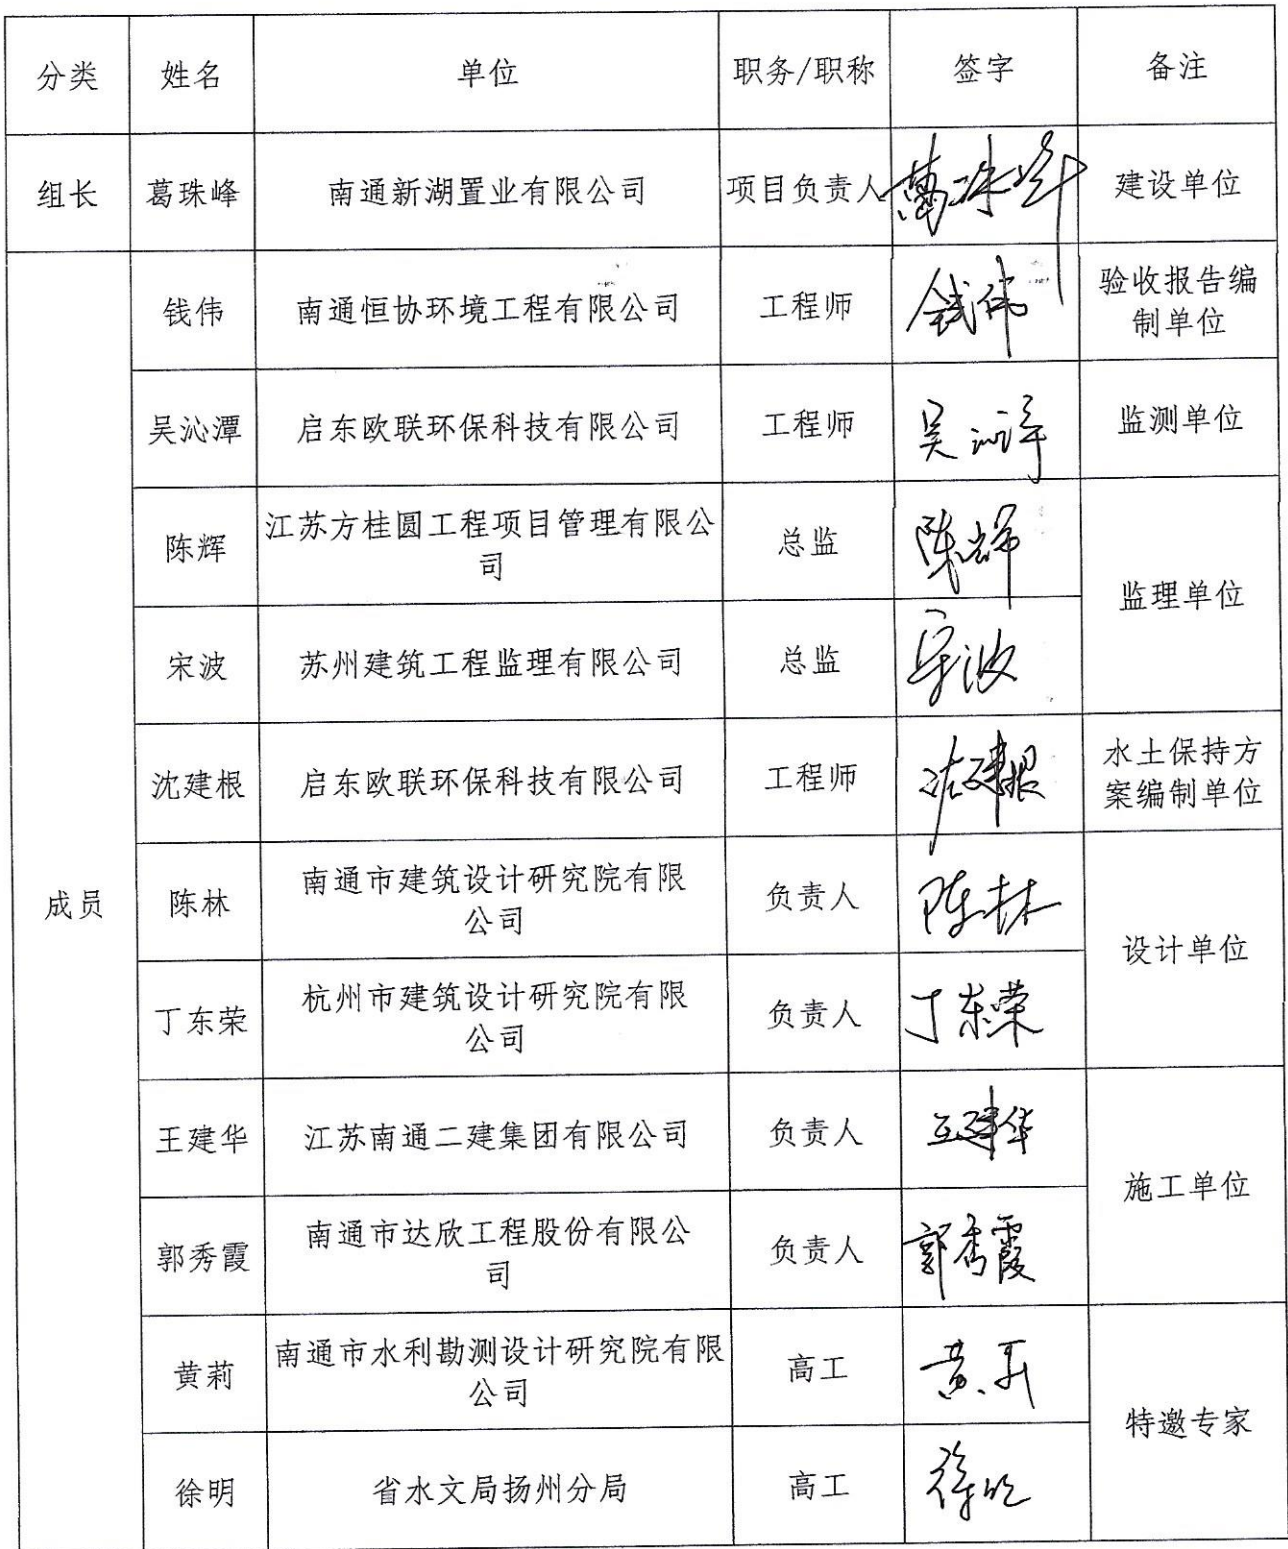 分类 姓名 单位 职务/职称 签字 备注
组长 葛珠峰 南通新湖置业有限公司 项目负责人 葛珠峰 建设单位
钱伟 南通恒协环境工程有限公司 工程师 钱伟 验收报告编
制单位
吴沁潭 启东欧联环保科技有限公司 工程师 吴沁潭 监测单位
陈辉 江苏方桂圆工程项目管理有限公
司 总监 陈辉 监理单位
宋波 苏州建筑工程监理有限公司 总监 宋波
沈建根 启东欧联环保科技有限公司 工程师 沈建根 水土保持方
案编制单位
成员 陈林 南通市建筑设计研究院有限
公司 负责人 陈林 设计单位
丁东荣 杭州市建筑设计研究院有限
公司 负责人 丁东荣
王建华 江苏南通二建集团有限公司 负责人 王建华 施工单位
郭秀霞 南通市达欣工程股份有限公
司 负责人 郭秀霞
黄莉 南通市水利勘测设计研究院有限
公司 高工 黄莉 特邀专家
徐明 省水文局扬州分局 高工 徐明